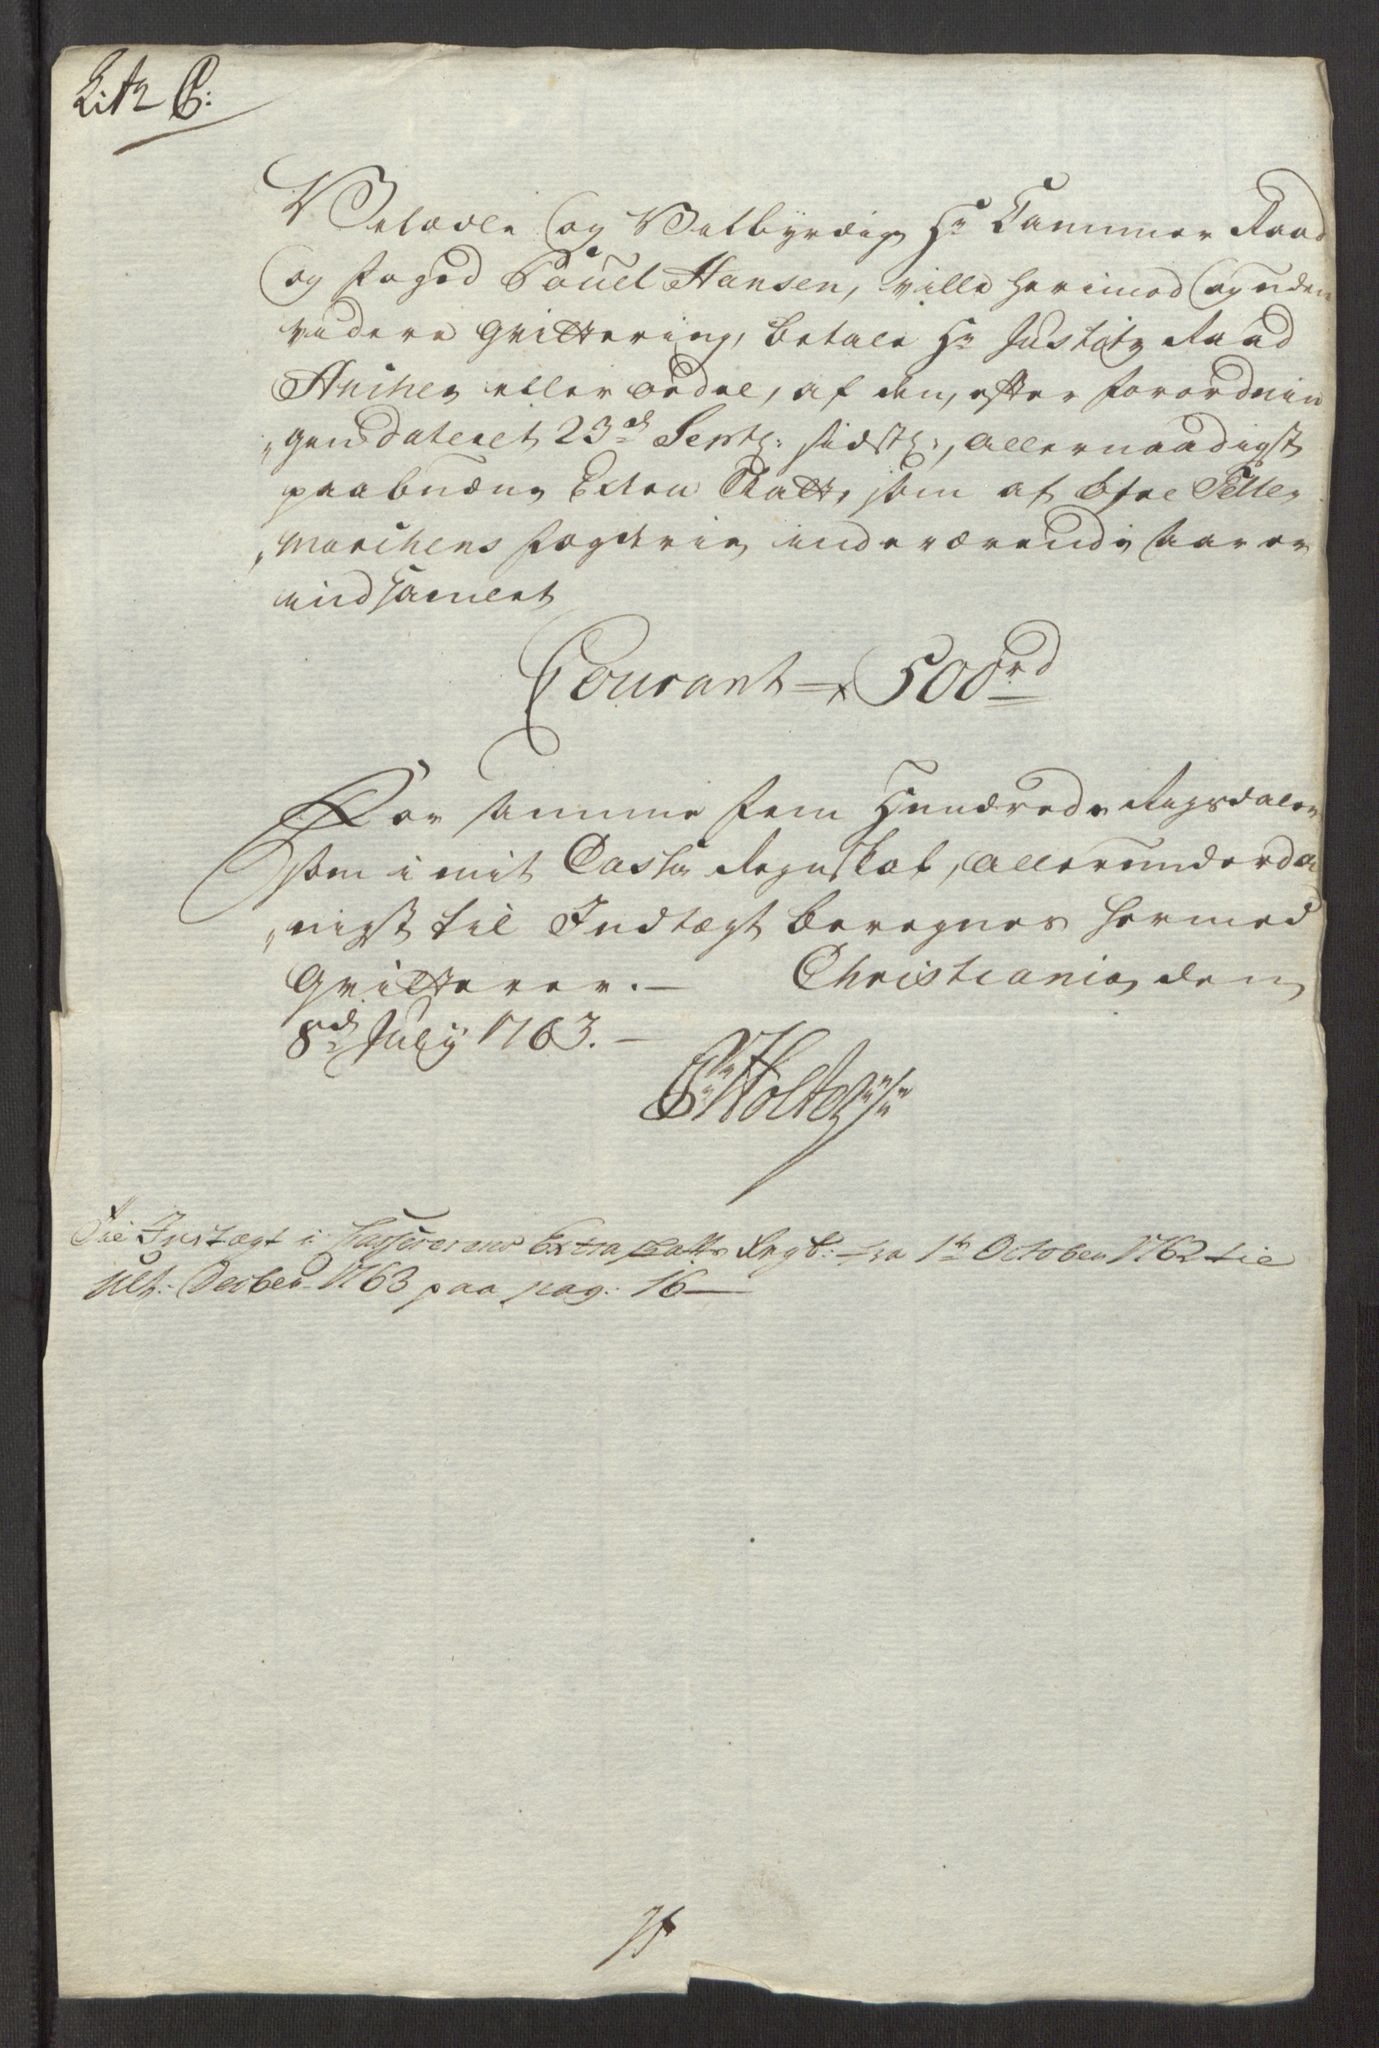 Litr C:
Velædle og Velbyrdige Hr Cammer Raad
og foged Pouel Hansen, ville herimod og uden
videre qvittering, betale Hr Justitz Raad
Ancher eller ordre, af den, efter forordnin
„gen dateret 23de Septbr: sidstl:, allernaadigst
paabudne Extra Skatt, som af Øfre Telle„
„marchens fogderie indeværende aar er
indsamlet
Courant 500rd
For samme fem Hundrede Rigsdaler
som i mit Cassa Regnskab, allerunderda„
„nigst til Indtægt beregnes hermed
Qvitterer. — Christiania den
8de July 1763. —
P: Holter
Til Indtægt i Cassererens Extra Skatts Regb: fra 1te October 1762 til
Ult: Decbr 1763 paa pag: 16 —